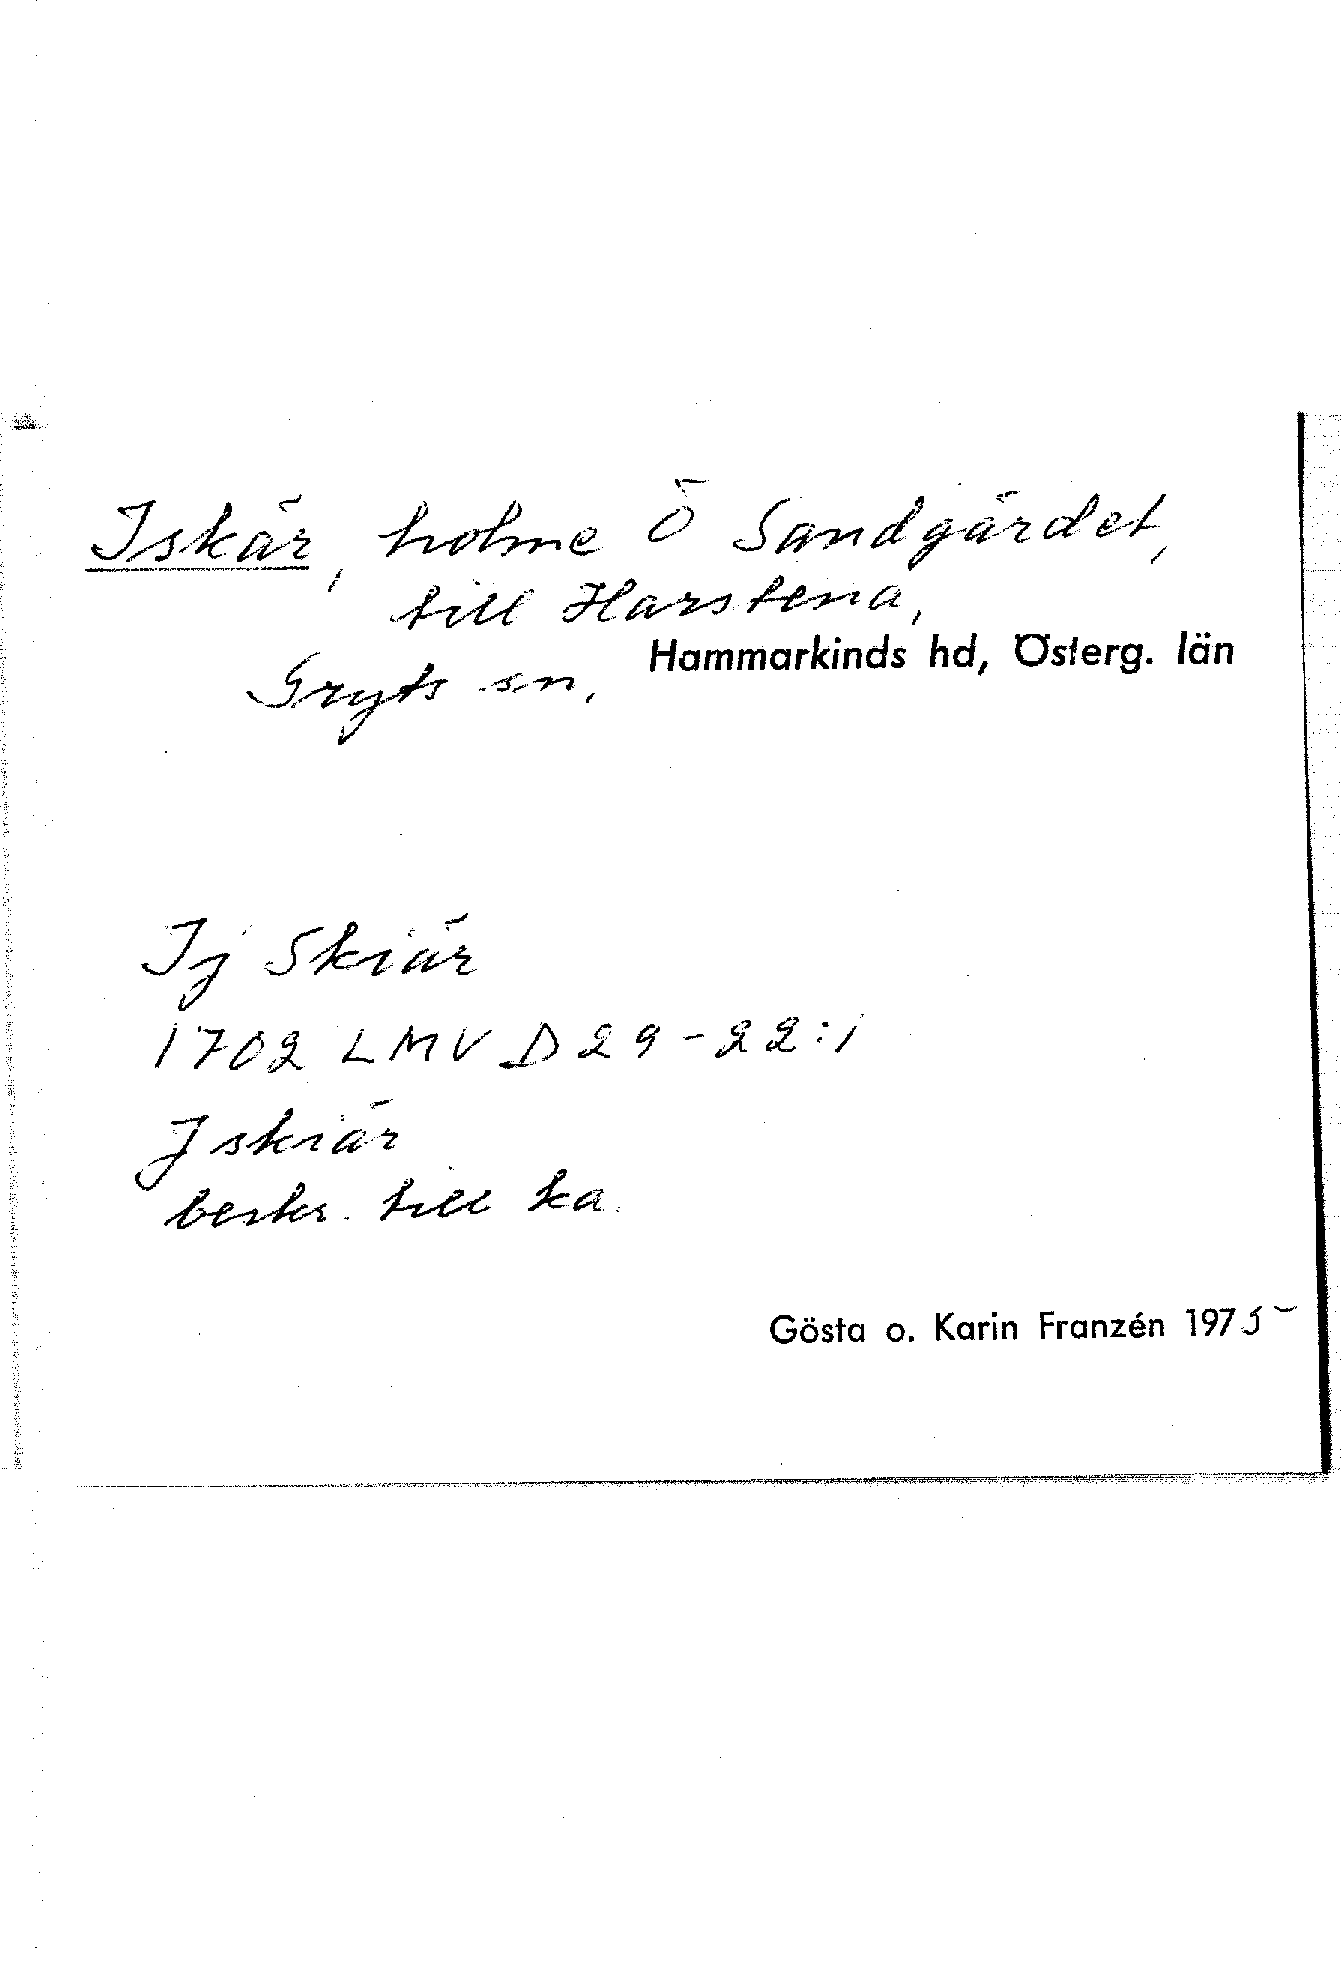 Iskär, holme Ö Sandgärdet,
till Harstena,
Gryts sn, Hammarkinds hd, Österg. län
Ij Skiär
1702 LMV D29-22:1
Jskiär
beskr. till ka.
Gösta o. Karin Franzén 1975